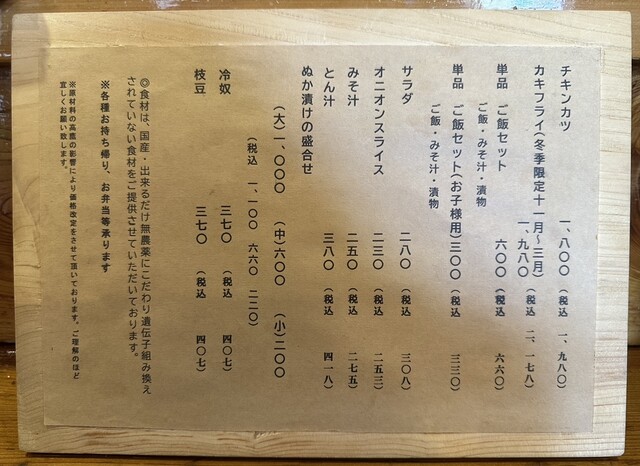 チキンカツ　一、八〇〇（税込　一、九八〇）
カキフライ（冬季限定十一月～三月）
一、九八〇（税込　二、一七八）
単品　ご飯セット　六〇〇（税込　六六〇）
ご飯・みそ汁・漬物
単品　ご飯セット（お子様用）三〇〇（税込　三三〇）
ご飯・みそ汁・漬物
サラダ　二八〇（税込　三〇八）
オニオンスライス　二三〇（税込　二五三）
みそ汁　二五〇（税込　二七五）
とん汁　三八〇（税込　四一八）
ぬか漬けの盛合せ
（大）一、〇〇〇　（中）六〇〇　（小）二〇〇
（税込　一、一〇〇　六六〇　二二〇）
冷奴　三七〇（税込　四〇七）
枝豆　三七〇（税込　四〇七）
◎食材は、国産・出来るだけ無農薬にこだわり遺伝子組み換え
されていない食材をご提供させていただいております。
※各種お持ち帰り、お弁当等承ります
※原材料の高騰の影響により価格改定をさせて頂いております。ご理解のほど
宜しくお願い致します。